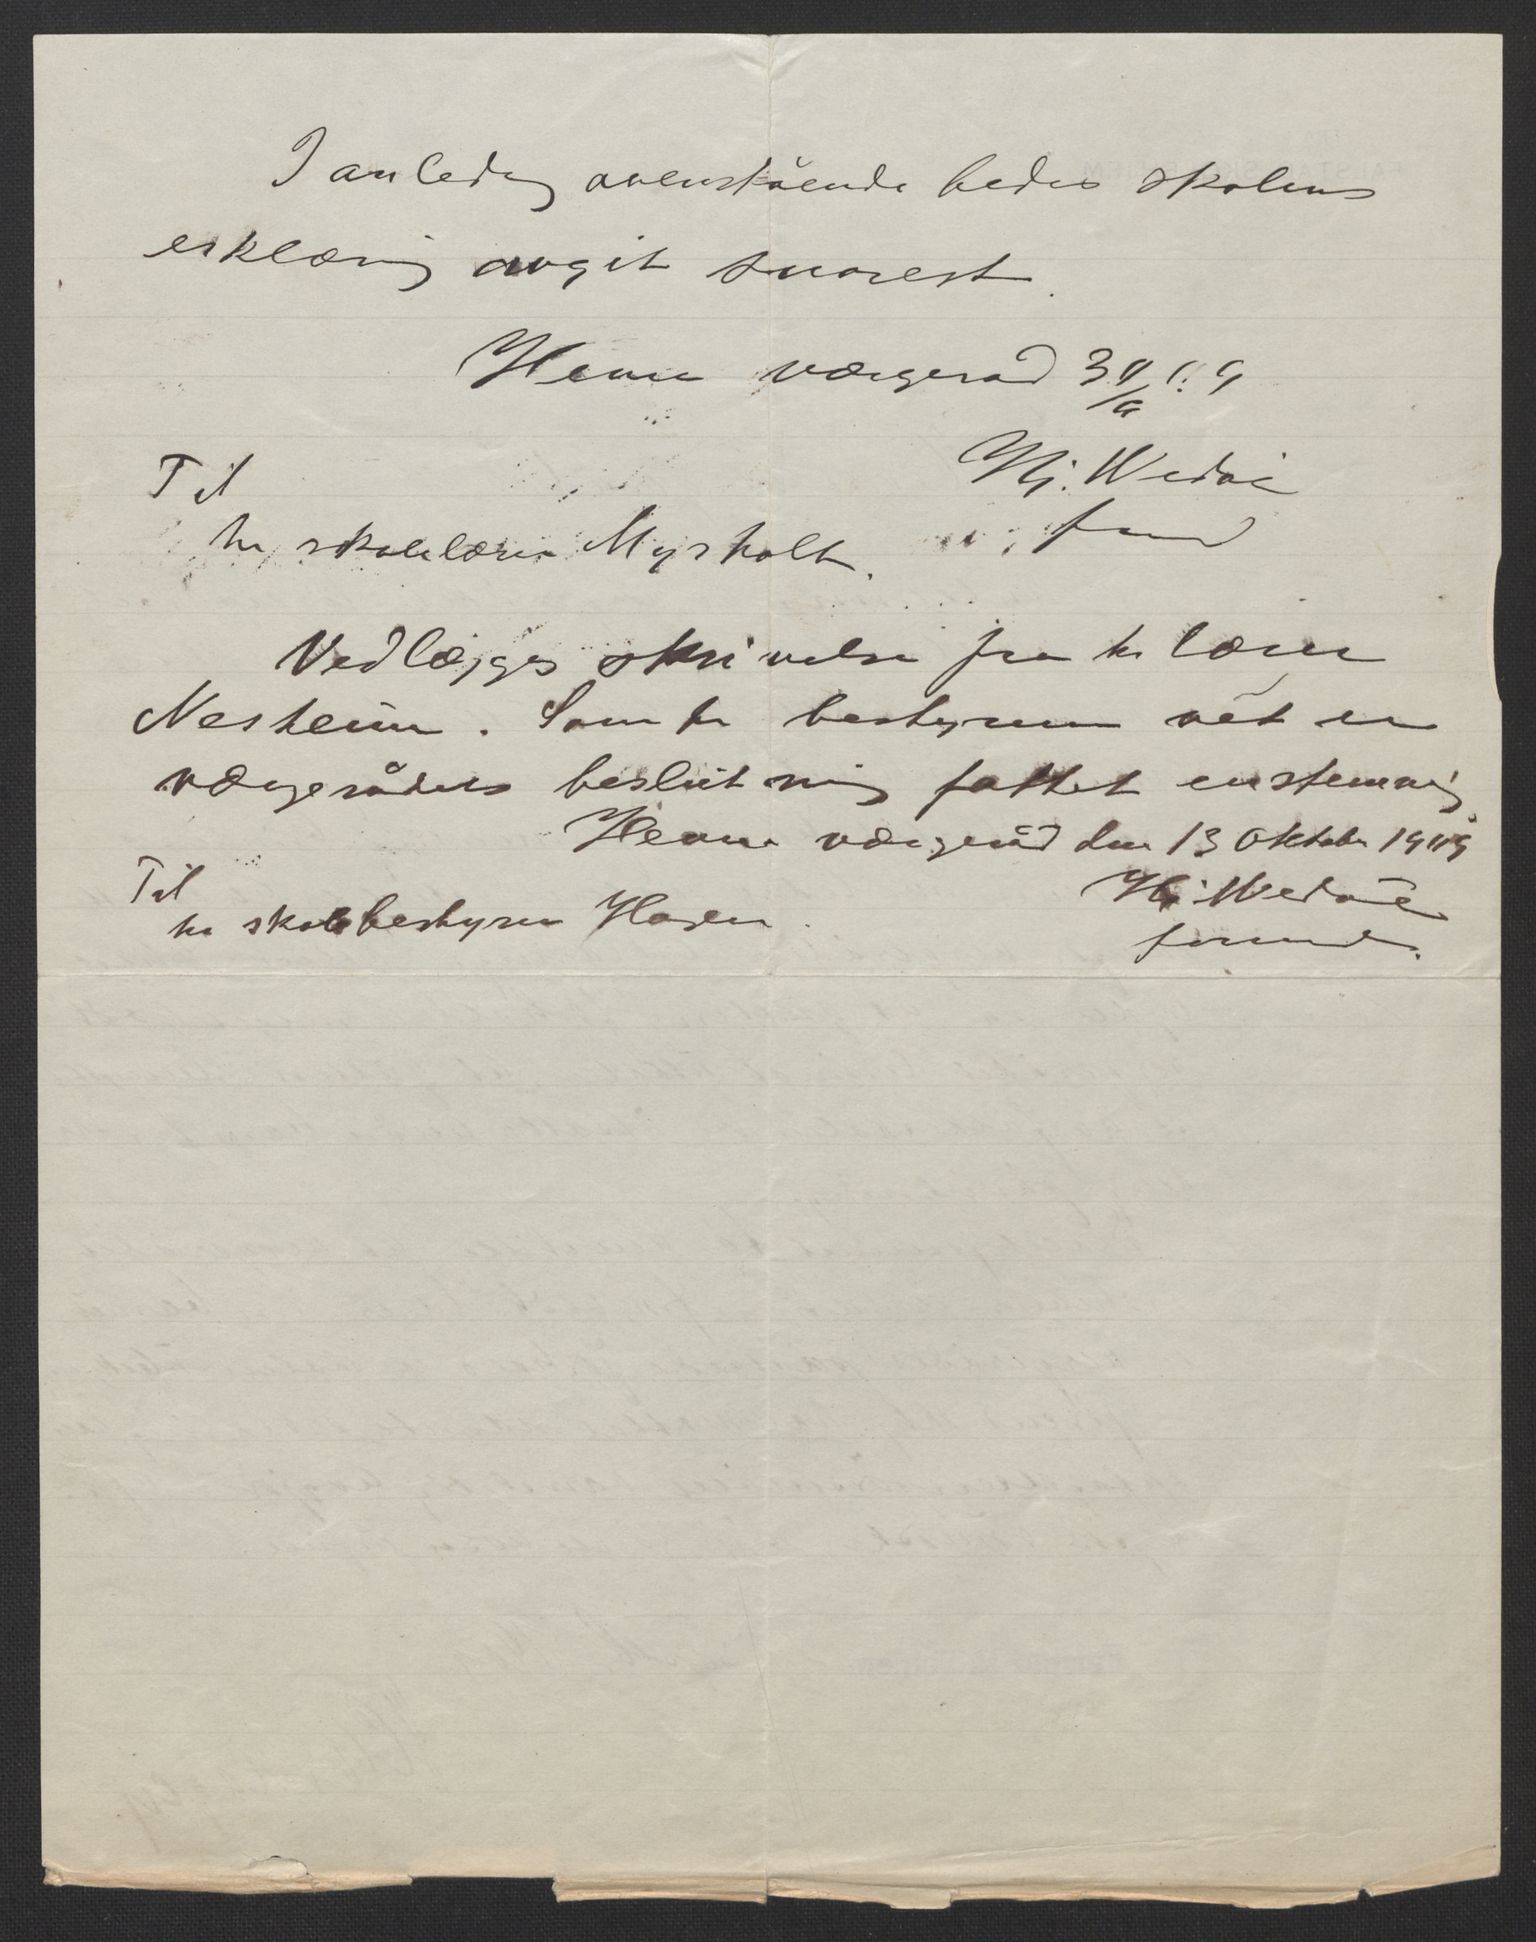 I anledng ovenstående bedes skolens
erklæring avgit snarest.
Hevne værgeråd 30/9 19
Hj. Wedøe
Til
hr skolelærer Myrholt.
form
Vedlægges skrivelse fra hr lærer
Nesheim. Som hr bestyreren vet er
værgerådets beslutning fattet enstemmig.
Hevne værgeråd den 13 Oktober 1919
Til
Hj. Wedøe
hr skolebestyrer Hagen.
formd.